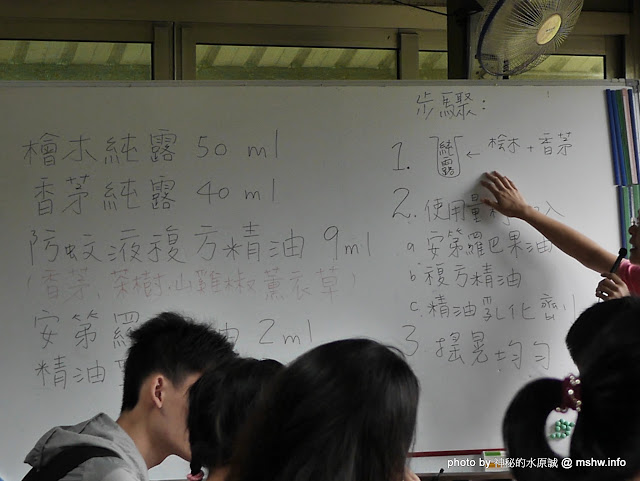 檜木純露 50 ml
香茅純露 40 ml
防蚊液複方精油 9ml
(香茅、茶樹、山雞椒薰衣草)
安第羅 油 2ml
精油
步驟:
1. 純露 ← 檜木 + 香茅
2. 使用量
a 安第羅巴果油
b 複方精油
c. 精油乳化劑
3 搖晃均勻
photo by 神秘的水原誠 @ mshw.info